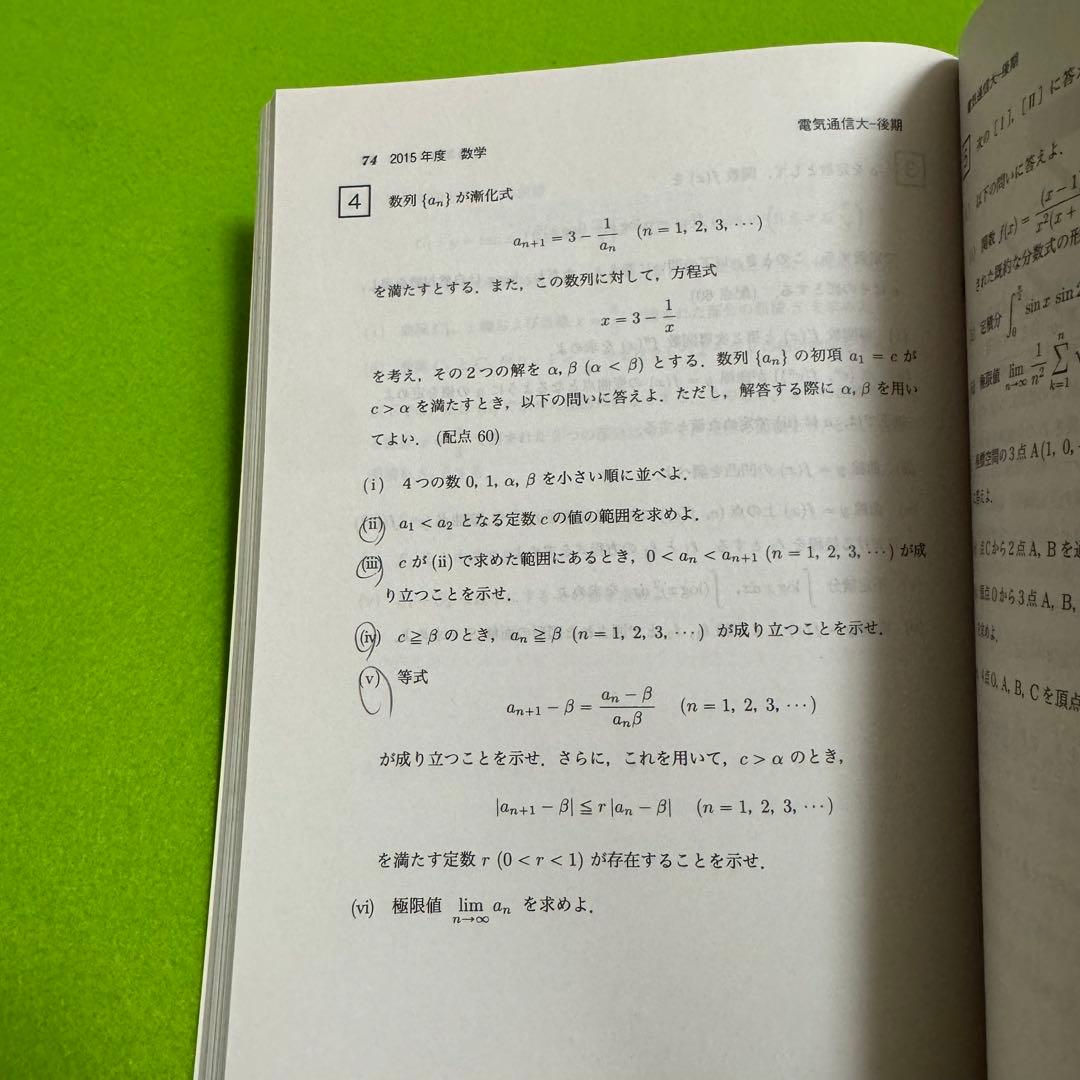 電気通信大-後期
74 2015年度 数学
4 数列 {aₙ} が漸化式
aₙ₊₁ = 3 − 1/aₙ (n = 1, 2, 3, ⋯)
を満たすとする．また，この数列に対して，方程式
x = 3 − 1/x
を考え，その２つの解を α, β (α < β) とする．数列 {aₙ} の初項 a₁ = c が
c > α を満たすとき，以下の問いに答えよ．ただし，解答する際に α, β を用い
てよい．(配点 60)
(i) 4つの数 0, 1, α, β を小さい順に並べよ．
(ii) a₁ < a₂ となる定数 c の値の範囲を求めよ．
(iii) c が (ii) で求めた範囲にあるとき，0 < aₙ < aₙ₊₁ (n = 1, 2, 3, ⋯) が成
り立つことを示せ．
(iv) c ≧ β のとき，aₙ ≧ β (n = 1, 2, 3, ⋯) が成り立つことを示せ．
(v) 等式
aₙ₊₁ − β = (aₙ − β)/(aₙβ) (n = 1, 2, 3, ⋯)
が成り立つことを示せ．さらに，これを用いて，c > α のとき，
|aₙ₊₁ − β| ≦ r |aₙ − β| (n = 1, 2, 3, ⋯)
を満たす定数 r (0 < r < 1) が存在することを示せ．
(vi) 極限値 lim n→∞ aₙ を求めよ．
電気通信大-後期
次の [I], [II] に答
以下の問いに答えよ．
関数 f(x) = (x − 1
x²(x +
された既約な分数式の形
定積分 ∫ sin x sin 2
極限値 lim n→∞ 1/n² Σ k=1 n
空間の3点 A(1, 0,
に答えよ．
点Cから2点 A, B を通
点Oから3点 A, B,
を求めよ．
4点O, A, B, C を頂点